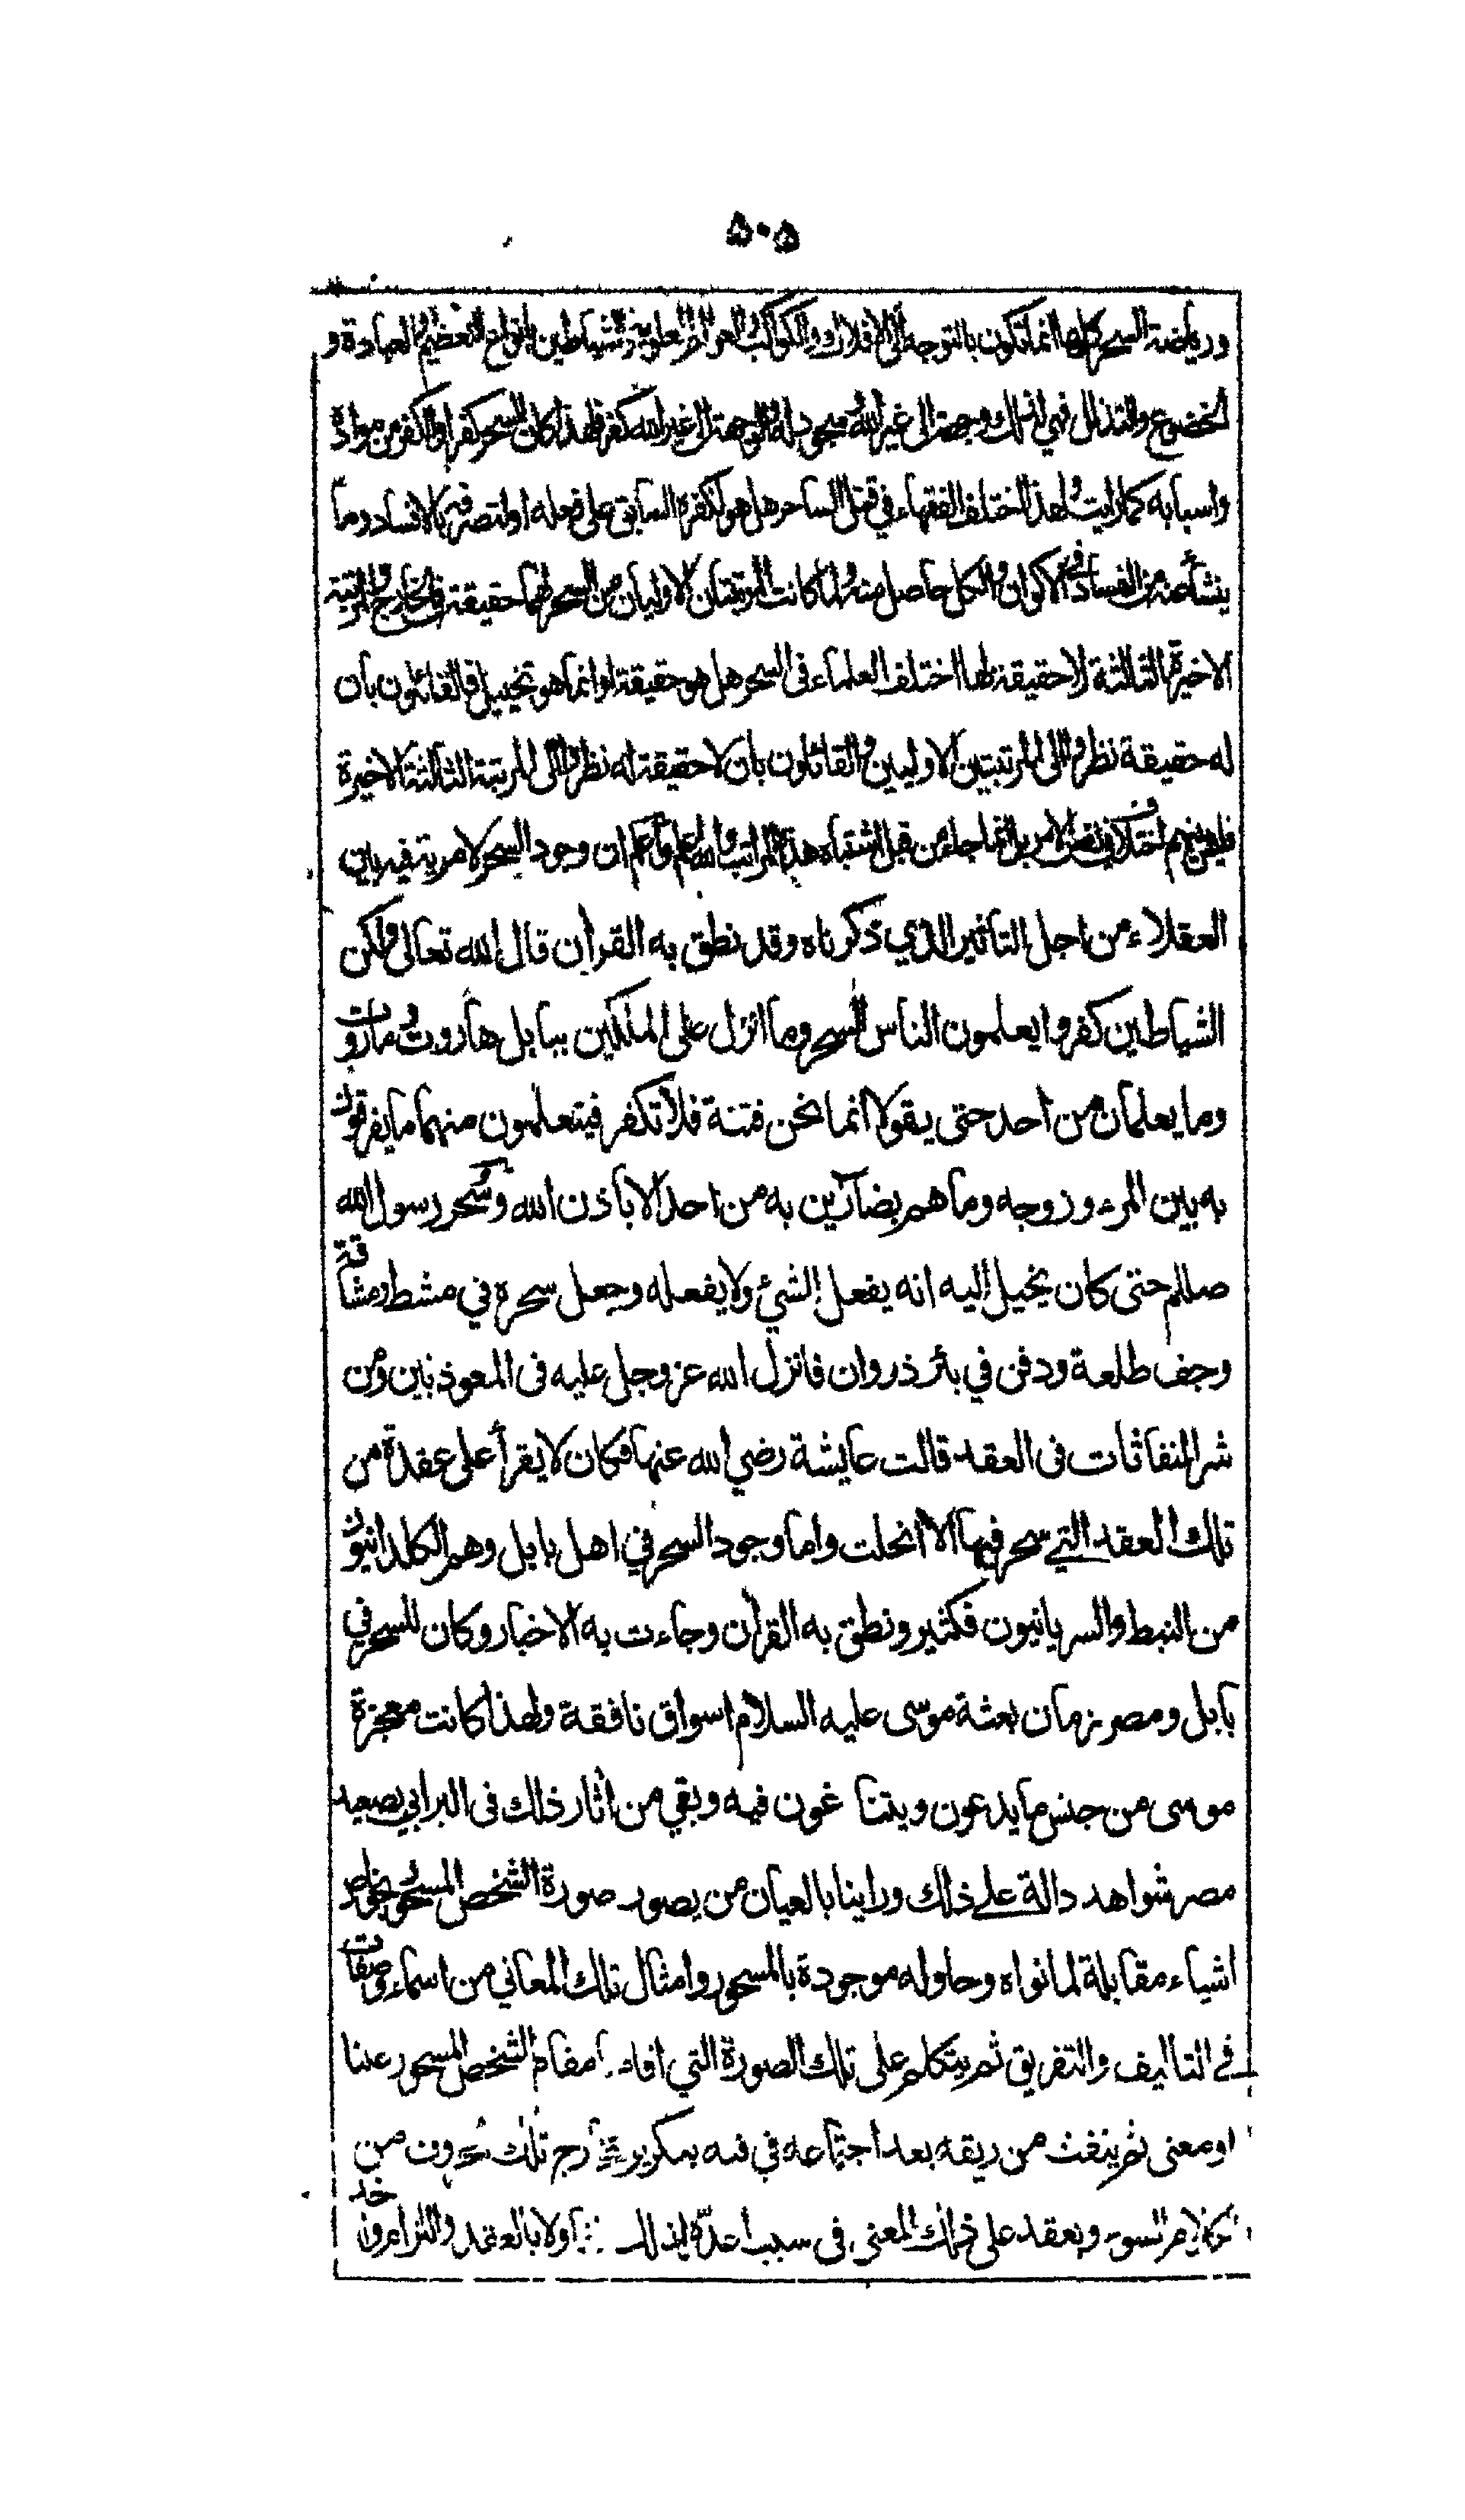 ٥٠٥
ورياضة السحر كلها انما تكون بالتوجه الى الافلاك والكواكب والعوالم العلوية والشياطين بانواع التعظيم والعبادة و
الخضوع والتذلل فهي لذلك وجهة الى غير الله وسجود له والوجهة الى غير الله كفر فلهذا كان السحر كفرا والكفر من مواده
واسبابه كما رايت ولهذا اختلف الفقهاء في قتل الساحر هل هو لكفره السابق على فعله او لتصرفه بالافساد وما
ينشأ عنه من الفساد في الاكوان والكل حاصل منه ولما كانت المرتبتان الاوليان من السحر لهما حقيقة في الخارج والمرتبة
الاخيرة الثالثة لا حقيقة لها اختلف العلماء في السحر هل هو حقيقة او انما هو تخييل فالقائلون بان
له حقيقة نظروا الى المرتبتين الاوليين والقائلون بان لا حقيقة له نظروا الى المرتبة الثالثة الاخيرة
فليس بينهم اختلاف في نفس الامر بل انما جاء من قبل اشتباه هذه المراتب والله اعلم واعلم ان وجود السحر لا مرية فيه بين
العقلاء من اجل التاثير الذي ذكرناه وقد نطق به القران قال الله تعالى ولكن
الشياطين كفروا يعلمون الناس السحر وما انزل على الملكين ببابل هاروت وماروت
وما يعلمان من احد حتى يقولا انما نحن فتنة فلا تكفر فيتعلمون منهما ما يفرقون
به بين المرء وزوجه وما هم بضارّين به من احد الا باذن الله وسُحر رسول الله
صللم حتى كان يخيل إليه انه يفعل الشيء ولا يفعله وجعل سحره في مشط ومشاقة
وجف طلعة ودفن في بئر ذروان فانزل الله عز وجل عليه في المعوذتين ومن
شر النفاثات في العقد قالت عايشة رضي الله عنها فكان لا يقرأ على عقدة من
تلك العقد التي سحر فيها الا انحلت واما وجود السحر في اهل بابل وهم الكلدانيون
من النبط والسريانيون فكثير ونطق به القرآن وجاءت به الاخبار وكان للسحر في
بابل ومصر زمان بعثة موسى عليه السلام اسواق نافقة ولهذا كانت معجزة
موسى من جنس ما يدعون ويتنا غون فيه وبقي من اثار ذلك في البرابي بصعيد
مصر شواهد دالة على ذلك وراينا بالعيان من يصور صورة الشخص المسحور بخواص
اشياء مقابلة لما نواه وحاوله موجودة بالمسحور وامثال تلك المعاني من اسماء وصفات
في التاليف والتفريق ثم يتكلم على تلك الصورة التي اقامها مقام الشخص المسحور عينا
او معنى ثم ينفث من ريقه بعد اجتماعه في فيه بتكرير مخارج تلك الحروف من
الكلام السوء ويعقد على ذلك المعنى في سبب اعدّه لذلك تفاولا بالعقد والالزام